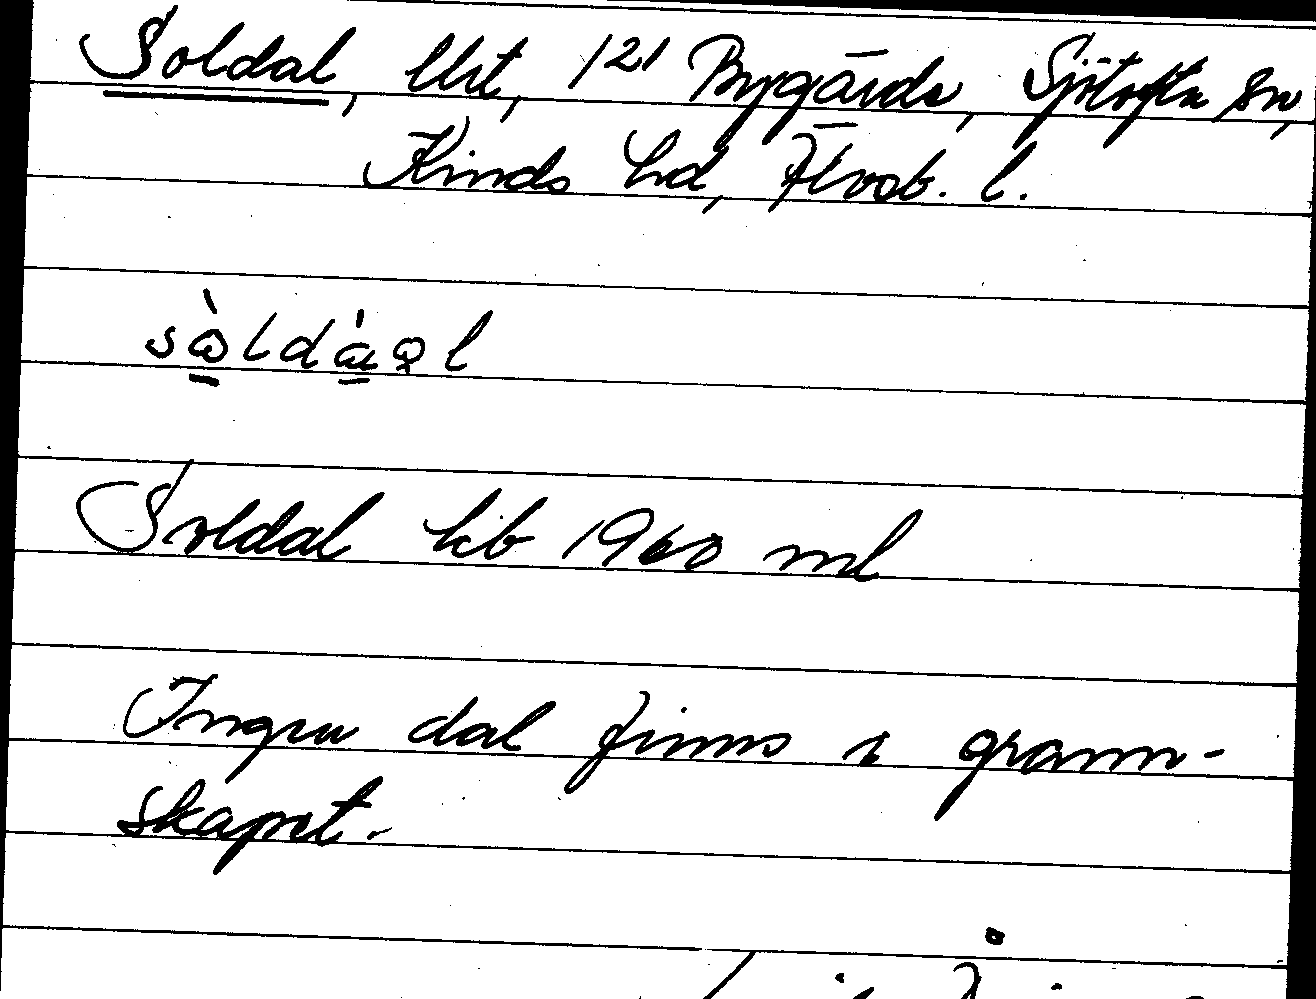 Soldal, lht, 121 Bygärde, Sjötofta sn,
Kinds hd, Älvsb. l.
Soldal kb 1960 ml
Ingen dal finns i grann-
skapet.